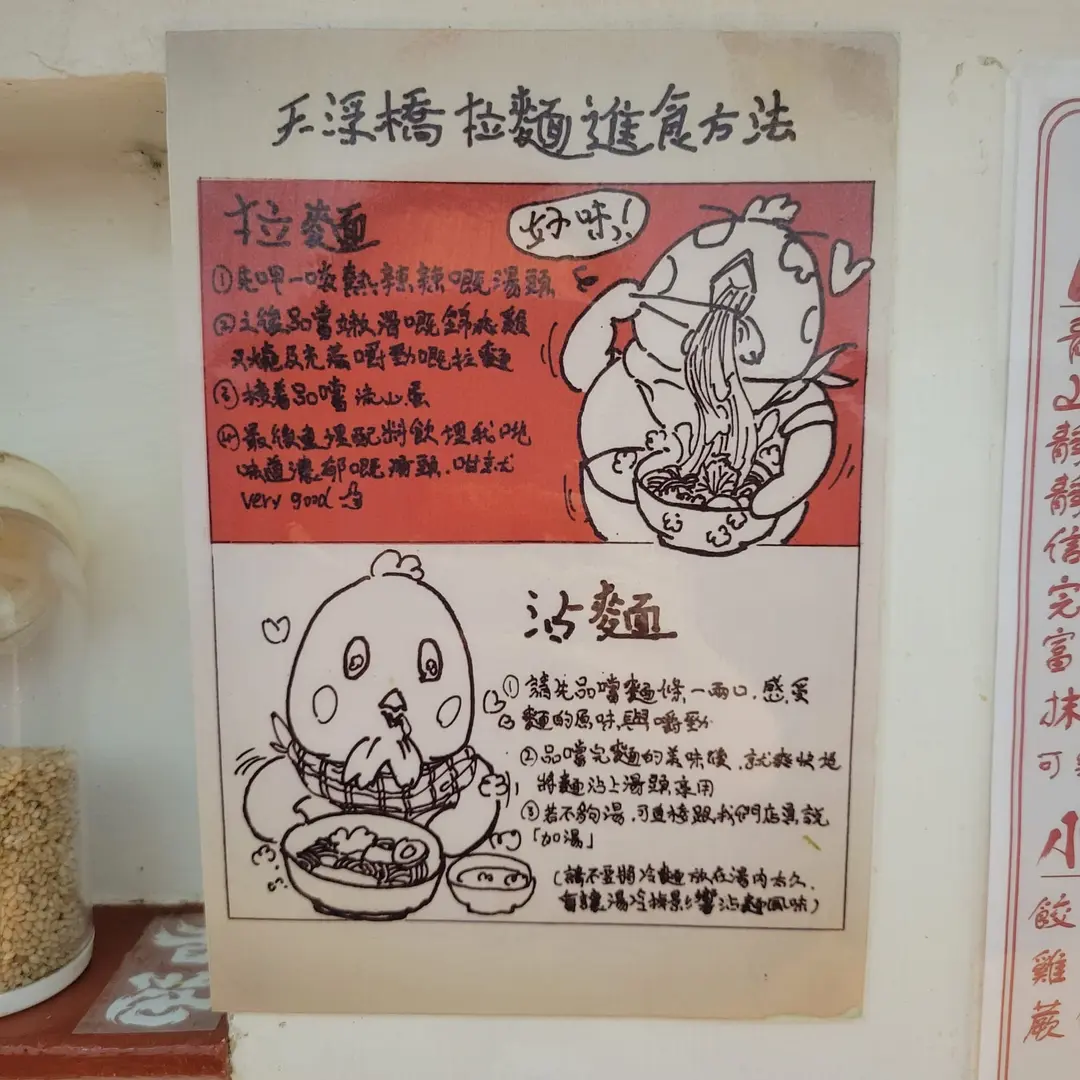 天深橋 拉麵進食方法
拉麵
好味!
①先呷一啖熱辣辣嘅湯頭
②之後品嘗嫩滑嘅錦爽雞
叉燒及充滿嚼勁嘅拉麵
③接着品嚐流心蛋
④最後直埋配料飲埋我哋
味道濃郁嘅湯頭.咁就
very good
沾麵
①請先品嚐麵條一兩口.感受
麵的原味與嚼勁
②品嚐完麵的美味後.就爽快地
將麵沾上湯頭享用
③若不夠湯.可直接跟我們店員說
「加湯」
(請不要將冷麵放在湯內太久.
會讓湯冷掉影響沾麵風味)
靜
靜
信
完
富
抹
可
小
餃
雞
蕨